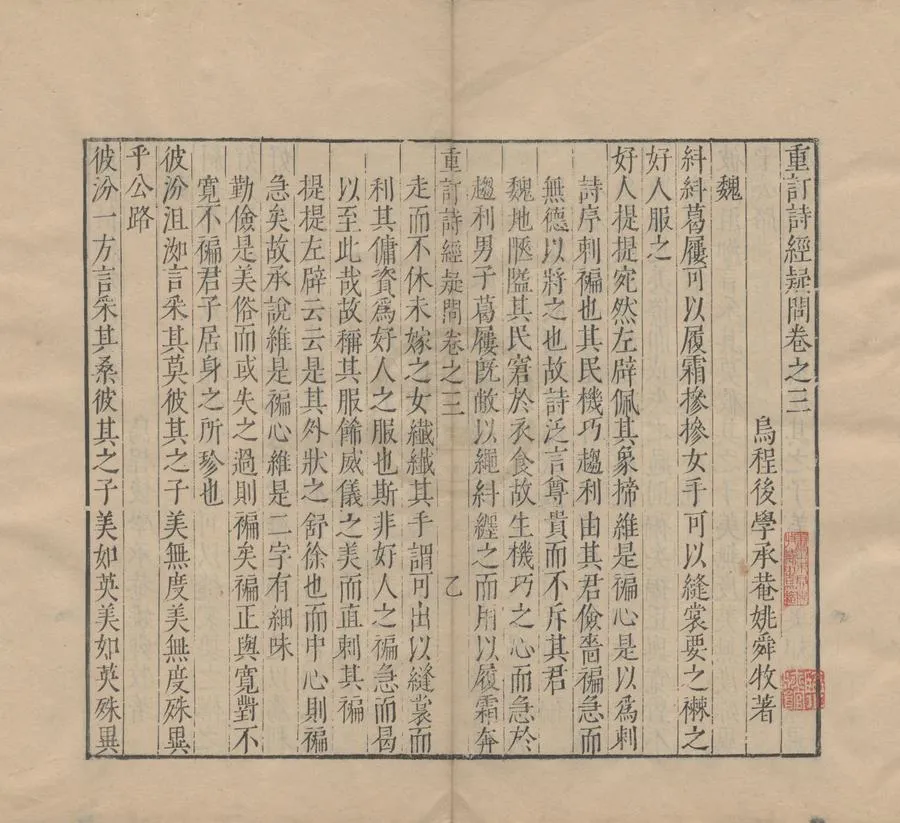 重訂詩經疑問卷之三
烏程後學承菴姚舜牧著
魏
糾糾葛屨可以履霜摻摻女手可以縫裳要之襋之
好人服之
好人提提宛然左辟佩其象揥維是褊心是以為刺
詩序刺褊也其民機巧趨利由其君儉嗇褊急而
無德以將之也故詩泛言尊貴而不斥其君
魏地陿隘其民窘於衣食故生機巧之心而急於
趨利男子葛屨旣敝以繩糾纏之而用以履霜奔
重訂詩經疑問卷之三 乙
走而不休未嫁之女纖纖其手謂可出以縫裳而
利其傭資為好人之服也斯非好人之褊急而曷
以至此哉故稱其服餙威儀之美而直刺其褊
提提左辟云云是其外狀之舒徐也而中心則褊
急矣故承說維是褊心維是二字有細味
勤儉是美俗而或失之過則褊矣褊正與寬對不
寬不褊君子居身之所珍也
彼汾沮洳言采其莫彼其之子美無度美無度殊異
乎公路
彼汾一方言采其桑彼其之子美如英美如英殊異